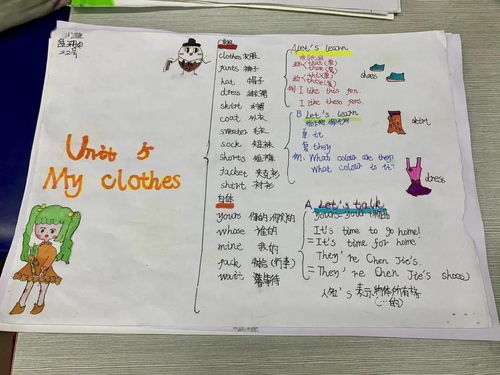 22号
Unit 5
My clothes
单词
clothes 衣服
pants 裤子
hat 帽子
dress 连衣裙
skirt 女裙
coat 外衣
sweater 毛衣
sock 短袜
shorts 短裤
jacket 夹克衫
shirt 衬衫
yours 你的 你们的
whose 谁的
mine 我的
pack 收拾(行李)
wait 等待
A. Let's learn
I like this pen.
I like these pens.
shoes
B. Let's learn
单 it
复 they
例: What colour are they?
What colour is it?
skirt
dress
A. Let's talk
It's time to go home!
= It's time for home
They're Chen Jie's.
= They're Chen Jie's shoes
人名's 表示物体所有格
(…的)